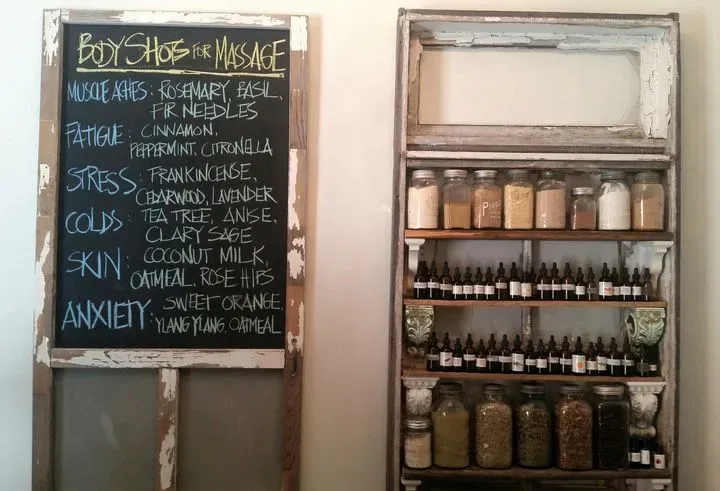 BODY SHOTS FOR MASSAGE
MUSCLE ACHES: ROSEMARY, BASIL,
FIR NEEDLES
FATIGUE: CINNAMON,
PEPPERMINT, CITRONELLA
STRESS: FRANKINCENSE,
CEDARWOOD, LAVENDER
COLDS: TEA TREE, ANISE,
CLARY SAGE
SKIN: COCONUT MILK,
OATMEAL, ROSE HIPS
ANXIETY: SWEET ORANGE,
YLANG YLANG, OATMEAL